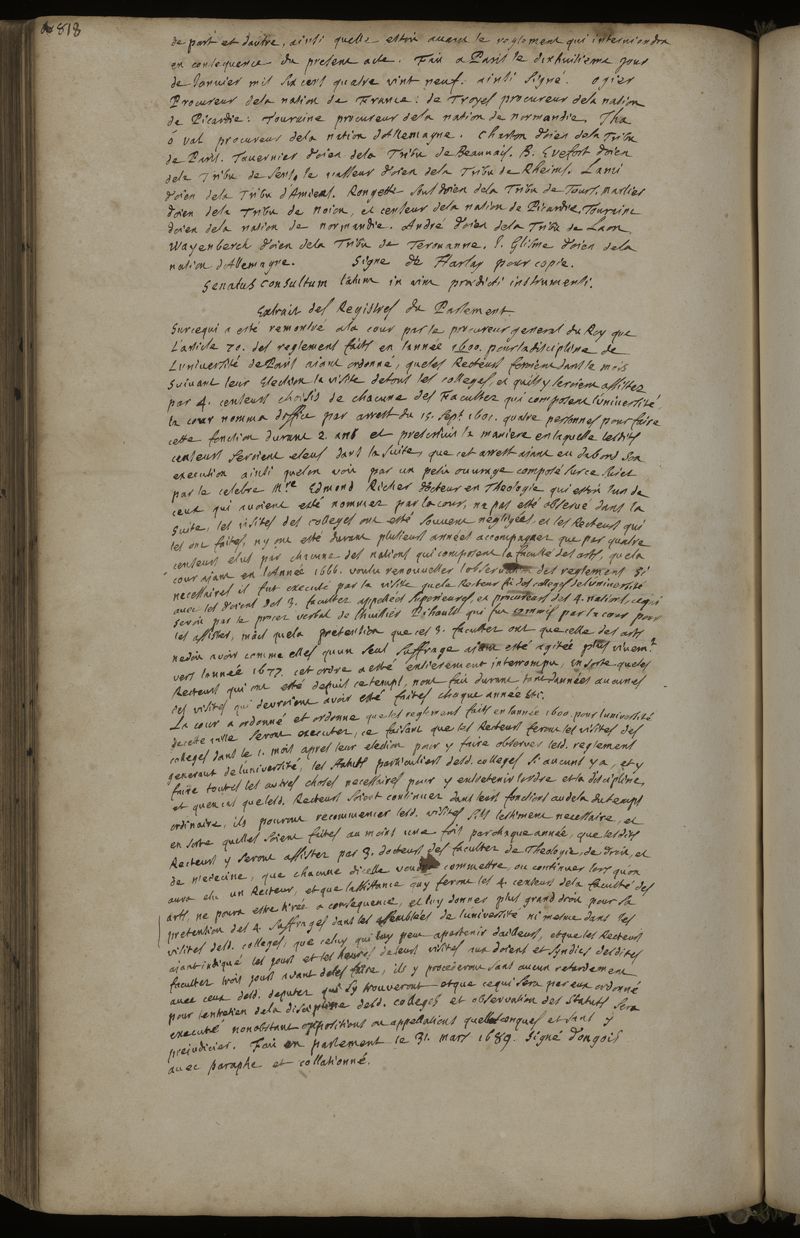 818
de part et dautre, ainsi quelle estoit avant le reglement qui interviendra
en consequence du present acte. Fait a Paris le dixhuitieme jour
de Janvier mil six cent quatre vint neuf. ainsi signé. ogier
Procureur dela nation de France: de Troyes procureur dela nation
de Picardie: Touraine procureur dela nation de normandie. Tho.
ô val procureur dela nation d'Allemagne. Charton doien dela Tribu
de Paris. Tavernier doien dela Tribu de Beauvais. B. Guefort doien
dela Tribu de Sens, le vasseur doien dela Tribu de Rheims. Lami
doien dela Tribu d'Amiens. Rongette sousdoien dela Tribu de Tours. marlier
doien dela Tribu de noion, et censeur dela nation de Picardie, Touraine
doien dela nation de normandie. André doien dela Tribu de Laon
Wayenberch doien dela Tribu de Terouanne. P. Glisne doien dela
nation d'Allemagne. Signe de Harlay pour copie.
Senatus consultum latum in vim prædicti instrumenti.
Extrait des Registres du Parlement.
Surcequi a esté remontré ala cour par le procureur general du Roy que
L'article 70. des reglement faits en lannée 1600. pour la discipline de
Luniversité de Paris aiant ordonné, que les Recteurs feroient dans le mois
suivant leur Election la visite detous les colleges, et quils y seroient assistez
par 4. censeurs choisis de chacune des Facultez qui composent luniversité,
la cour nomma doffice par arrest du 15. Sept. 1601. quatre personnes pour faire
cette fonction durant 2. ans et prescrivit la maniere en laquelle lesdits
censeurs seroient eleus dans la suite, que cet arrest aiant eu dabord son
execution ainsi quelon voit par un petit ouvrage composé surce sujet
par le celebre Mre Edmond Richer docteur en Theologie qui estoit lun de
ceux qui avoient esté nommez par la cour, na pas esté observé dans la
suite, les visites des colleges ont esté souvent negligées, et les Recteurs qui
les ont faites, ny ont esté durant plusieurs années accompagnez que par quatre
censeurs elus par chacune des nations qui composent la faculté des arts, que la
cour aiant en lannée 1666. voulu renouveller lobservation des reglement si
necessaires il fut executé par la visite que le Recteur fit des colleges de luniversité
avec les doiens des 3. facultez appellées superieures, et procureurs des 4. nations, cequi
servoit par le procez verbal de Thuillier Pihault qui fut commis par la cour pour
les assister, mais que la pretention que ces 3. facultez ont que celle des arts
nedoit avoir comme elles quun seul suffrage aiant esté agitée plus vivemt.
vers lannée 1677. cet ordre a esté entierement interrompu, en sorte queles
Recteurs qui ont esté depuis ce temps, nont fait durant tant dannées aucunes
des visites qui devroient avoir esté faites chaque année &c.
La cour a ordonné et ordonne que les reglement faits en lannée 1600. pour luniversité
de cette ville seront executez, ce faisant que les Recteurs feront les visites des
colleges dans le 1. mois apres leur election pour y faire observer lesd. reglement
generaux de luniversité, les statuts particuliers desd. colleges si aucuns y a, et y
faire toutes les autres choses necessaires pour y entretenir lordre et la discipline,
et quencas que lesd. Recteurs soient continuez dans leurs fonctions audela du temps
ordinaire, ils pourront recommencer lesd. visites sils lestiment necessaire, et
en sorte quelles soient faites au moins une fois par chaque année, que lesdits
Recteurs y seront assistez par 3. docteurs des facultez de Theologie, de droit, et
de medecine, que chacune dicelle voudra commettre, ou continuer lors quon
aura elu un Recteur, et que lassistance quy feront les 4. censeurs dela faculté des
arts, ne poura estre tirée a consequence, et luy donner plus grand droit pour sa
pretention des 4. suffrages dans les assemblées de luniversité ni mesme dans les
visites desd. colleges, que celuy qui luy peut apartenir dailleurs, et que les Recteurs
aiant indiqué les jours et les heures deleurs visites aux doiens et syndics desdites
facultez trois jours avant deles faire, ils y procederont sans aucun retardement
avec ceux desd. deputez qui sy trouveront et que cequi sera par eux ordonné
pour lentretien dela discipline desd. colleges et observation des statuts sera
executé nonobstant oppositions ou appellations quelconques et sans y
prejudicier. Fait en parlement le 31. mars 1689. Signé Dongois
avec paraphe et collationné.